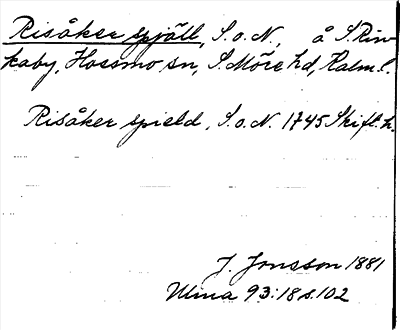 Risåker spjäll, S.o.N., å S. Rin-
kaby, Hossmo sn, S. Möre hd, Kalm. l.
Risåker spield, S.o.N. 1745 Skifl. h.
J. Jonsson 1881
Ulma 93:18 s. 102